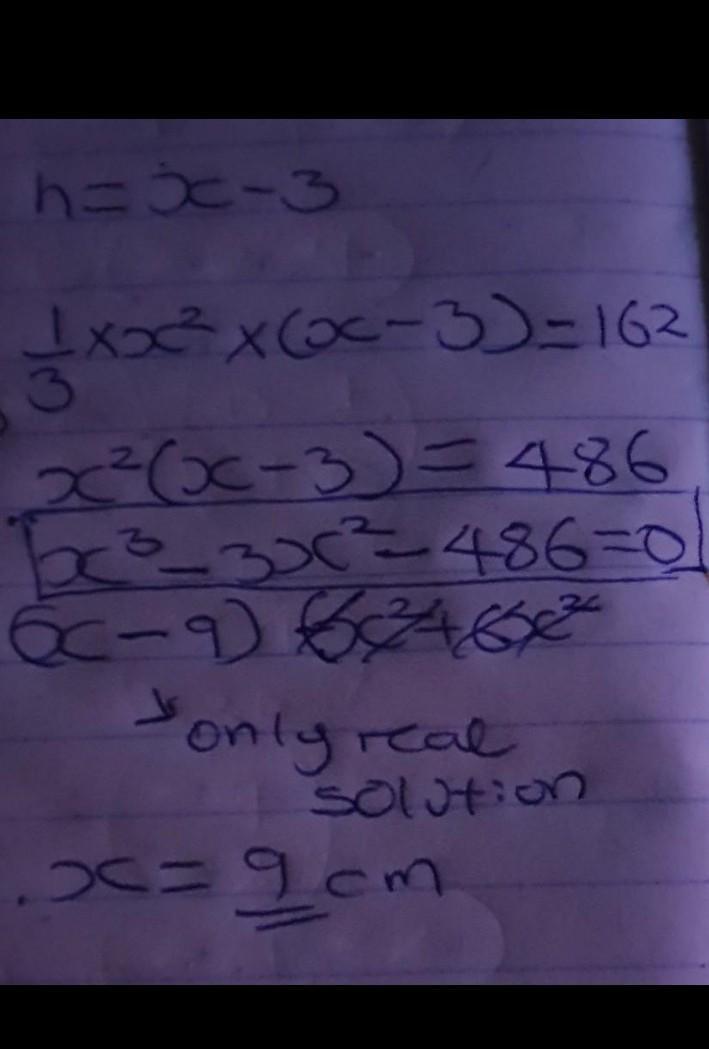 h=x-3
1/3 × x² × (x-3)=162
x²(x-3)=486
x³-3x²-486=0
(x-9)
↘ only real
solution
x= 9 cm